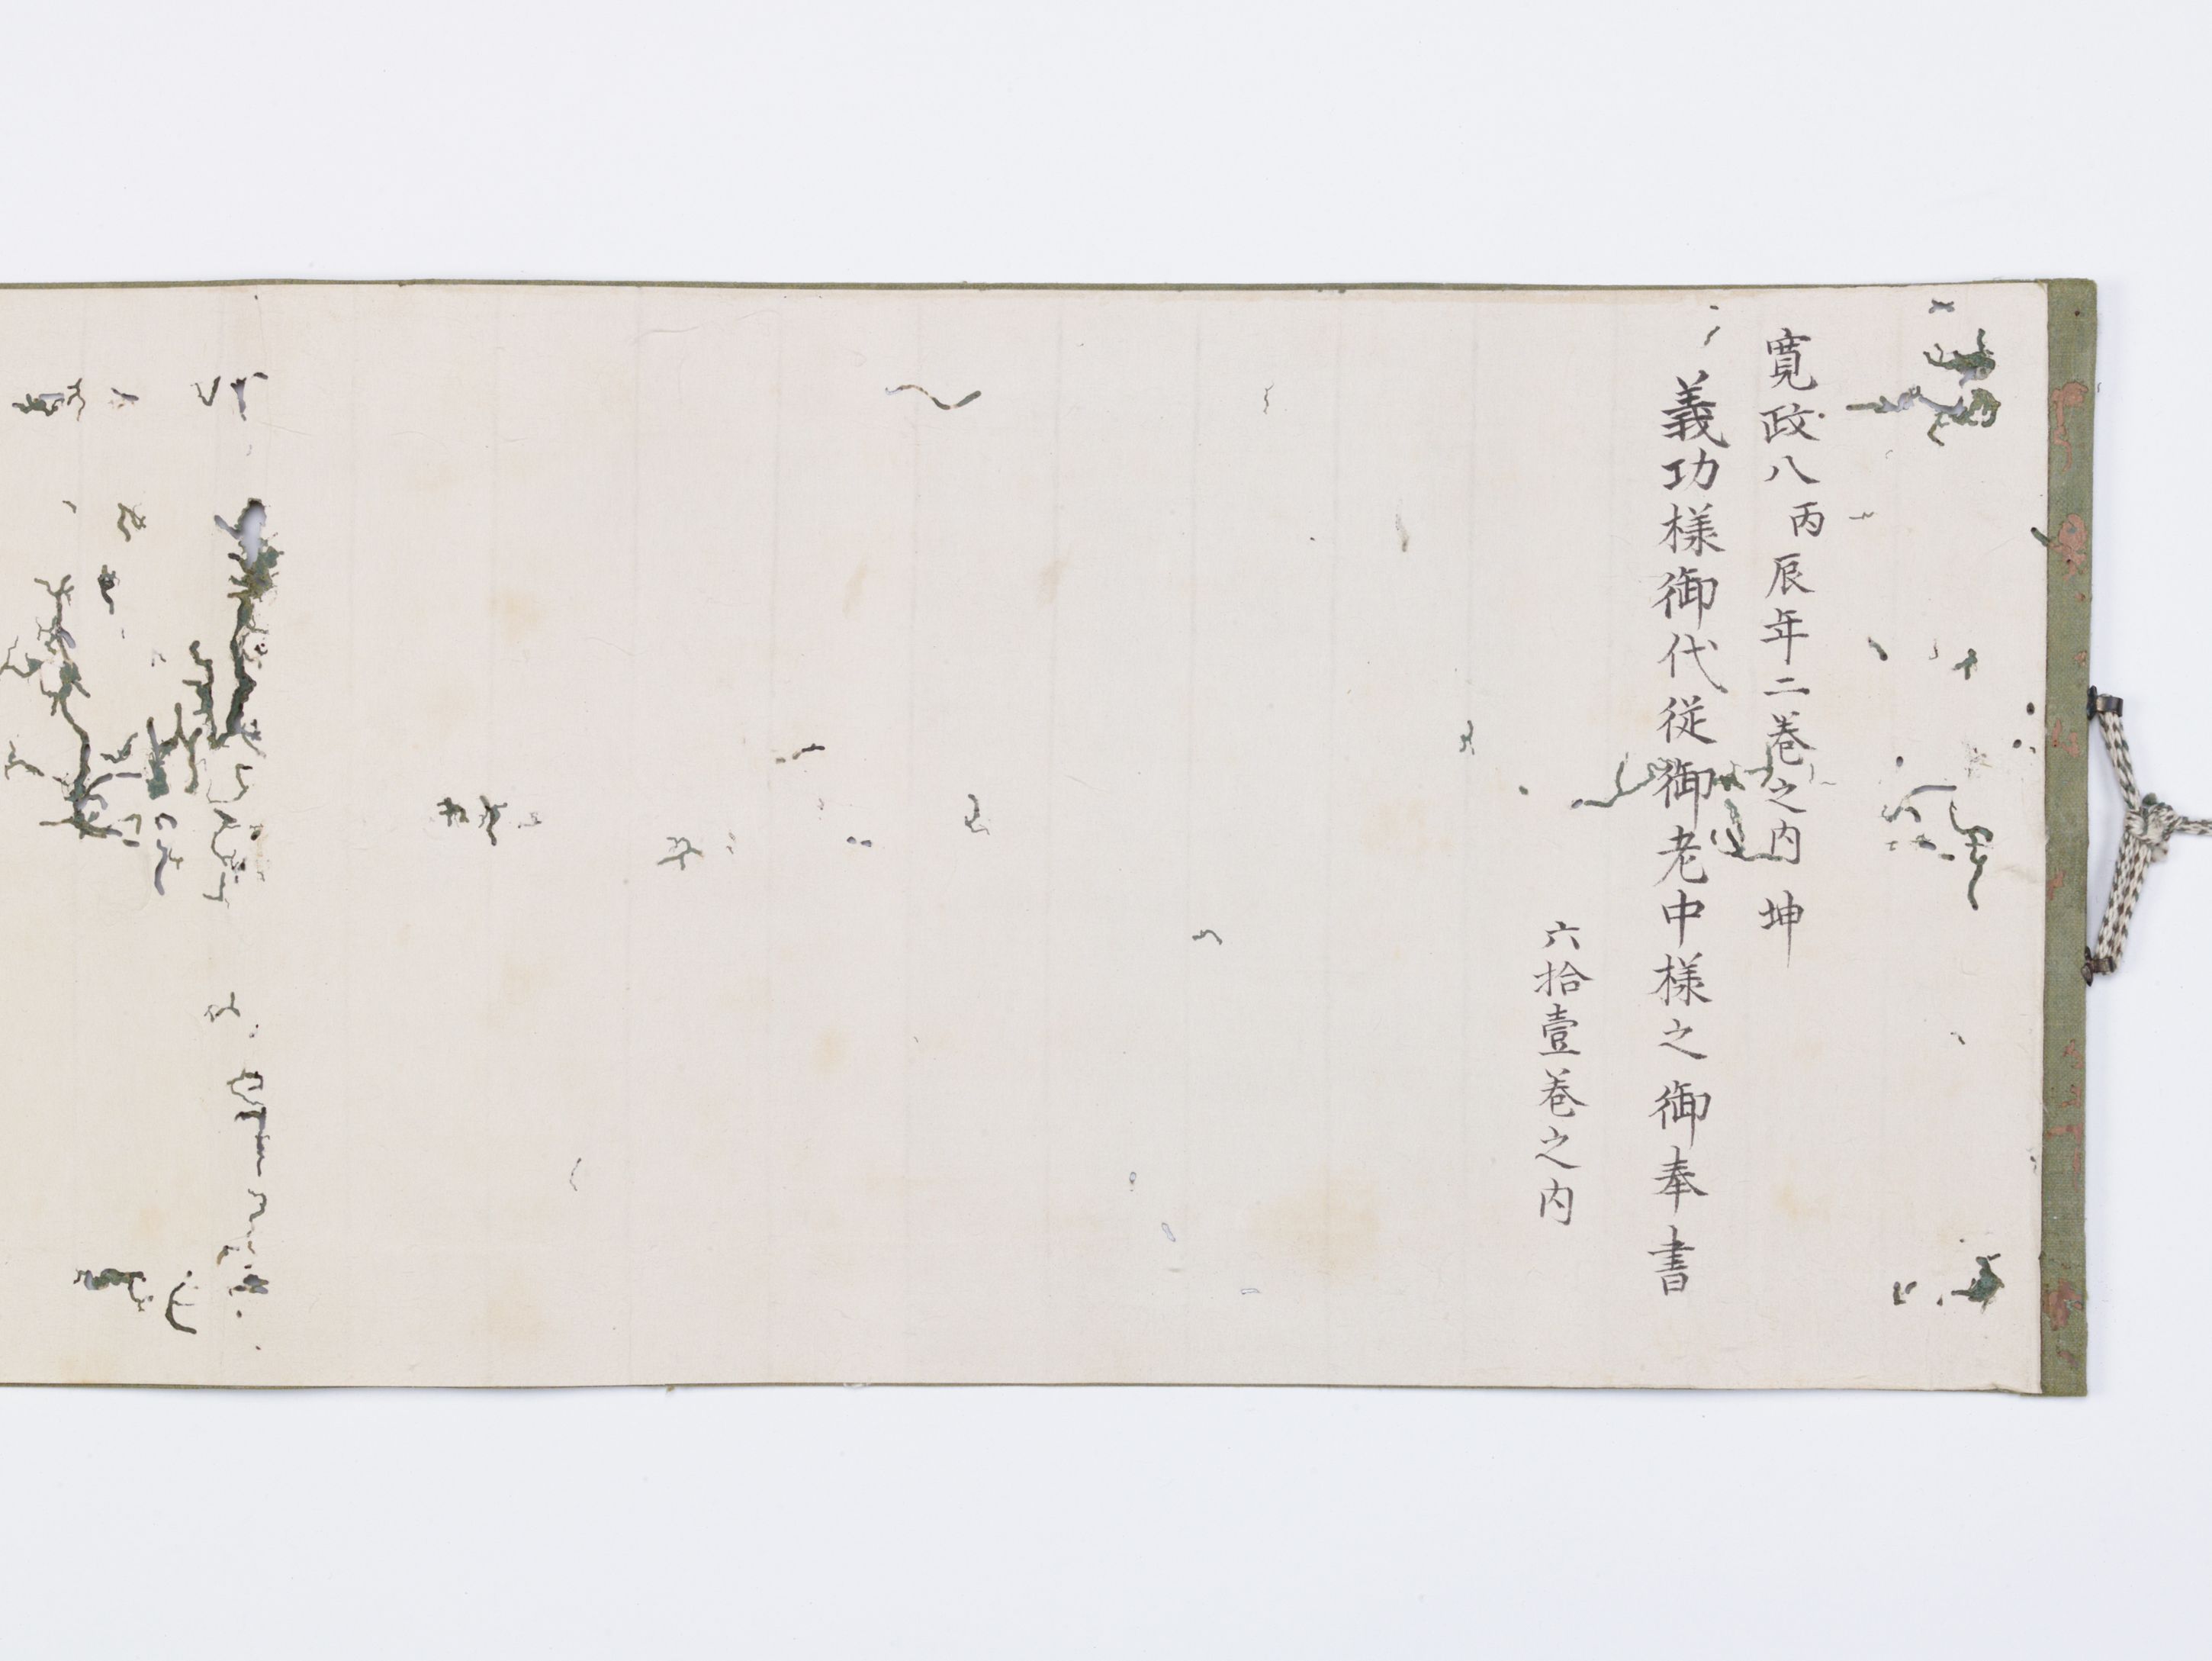 寛政八丙辰年二巻之内 坤
義功様御代従御老中様之御奉書
六拾壹巻之内